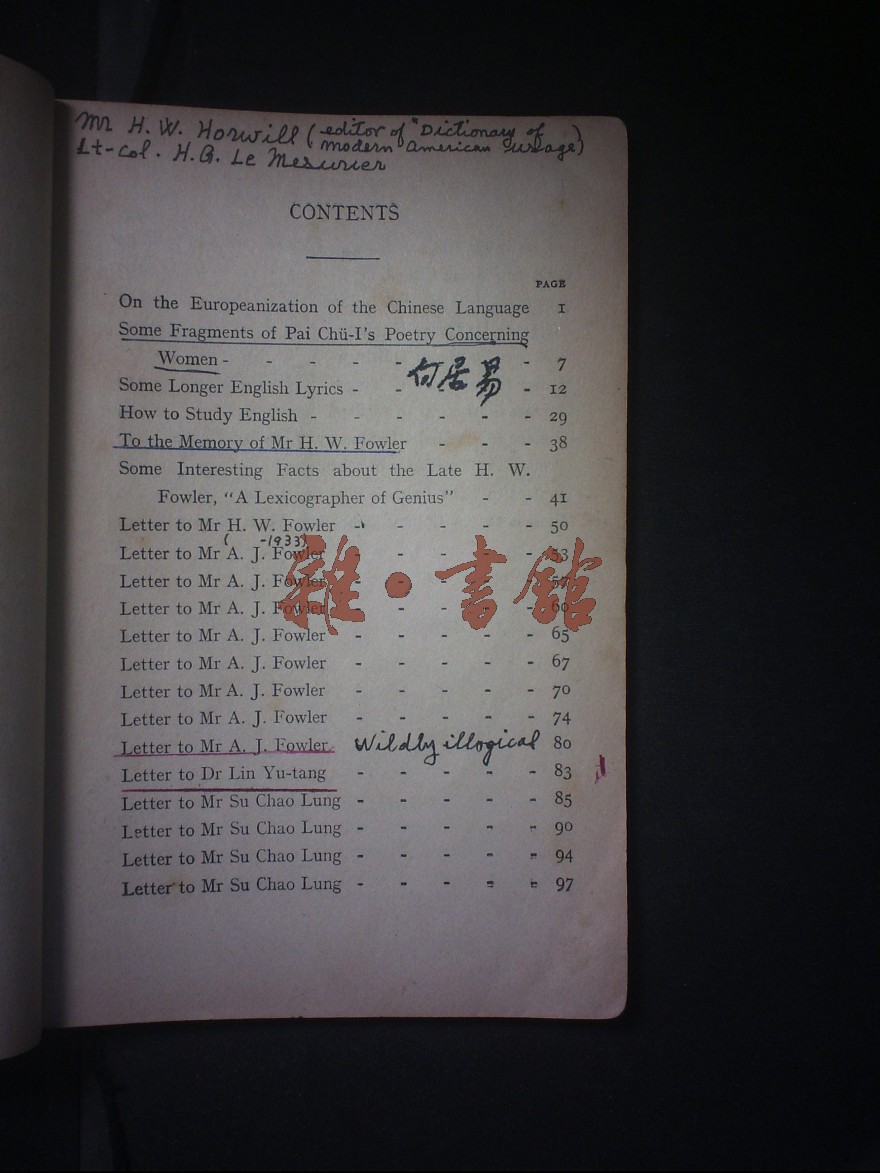 Mr H. W. Horwill (editor of "Dictionary of
modern American Usage)
Lt-col. H. G. Le Mesurier
CONTENTS
PAGE
On the Europeanization of the Chinese Language 1
Some Fragments of Pai Chü-I's Poetry Concerning
Women - - - - - - - - 7
居易
Some Longer English Lyrics - - - - - 12
How to Study English - - - - - - 29
To the Memory of Mr H. W. Fowler - - - 38
Some Interesting Facts about the Late H. W.
Fowler, "A Lexicographer of Genius" - - 41
Letter to Mr H. W. Fowler - - - - - 50
( -1933)
Letter to Mr A. J. Fowler - - - - - 53
Letter to Mr A. J. Fowler - - - - - 57
Letter to Mr A. J. Fowler - - - - - 60
雜•書館
Letter to Mr A. J. Fowler - - - - - 65
Letter to Mr A. J. Fowler - - - - - 67
Letter to Mr A. J. Fowler - - - - - 70
Letter to Mr A. J. Fowler - - - - - 74
Letter to Mr A. J. Fowler Wildly illogical 80
Letter to Dr Lin Yu-tang - - - - - 83
Letter to Mr Su Chao Lung - - - - - 85
Letter to Mr Su Chao Lung - - - - - 90
Letter to Mr Su Chao Lung - - - - - 94
Letter to Mr Su Chao Lung - - - - - 97